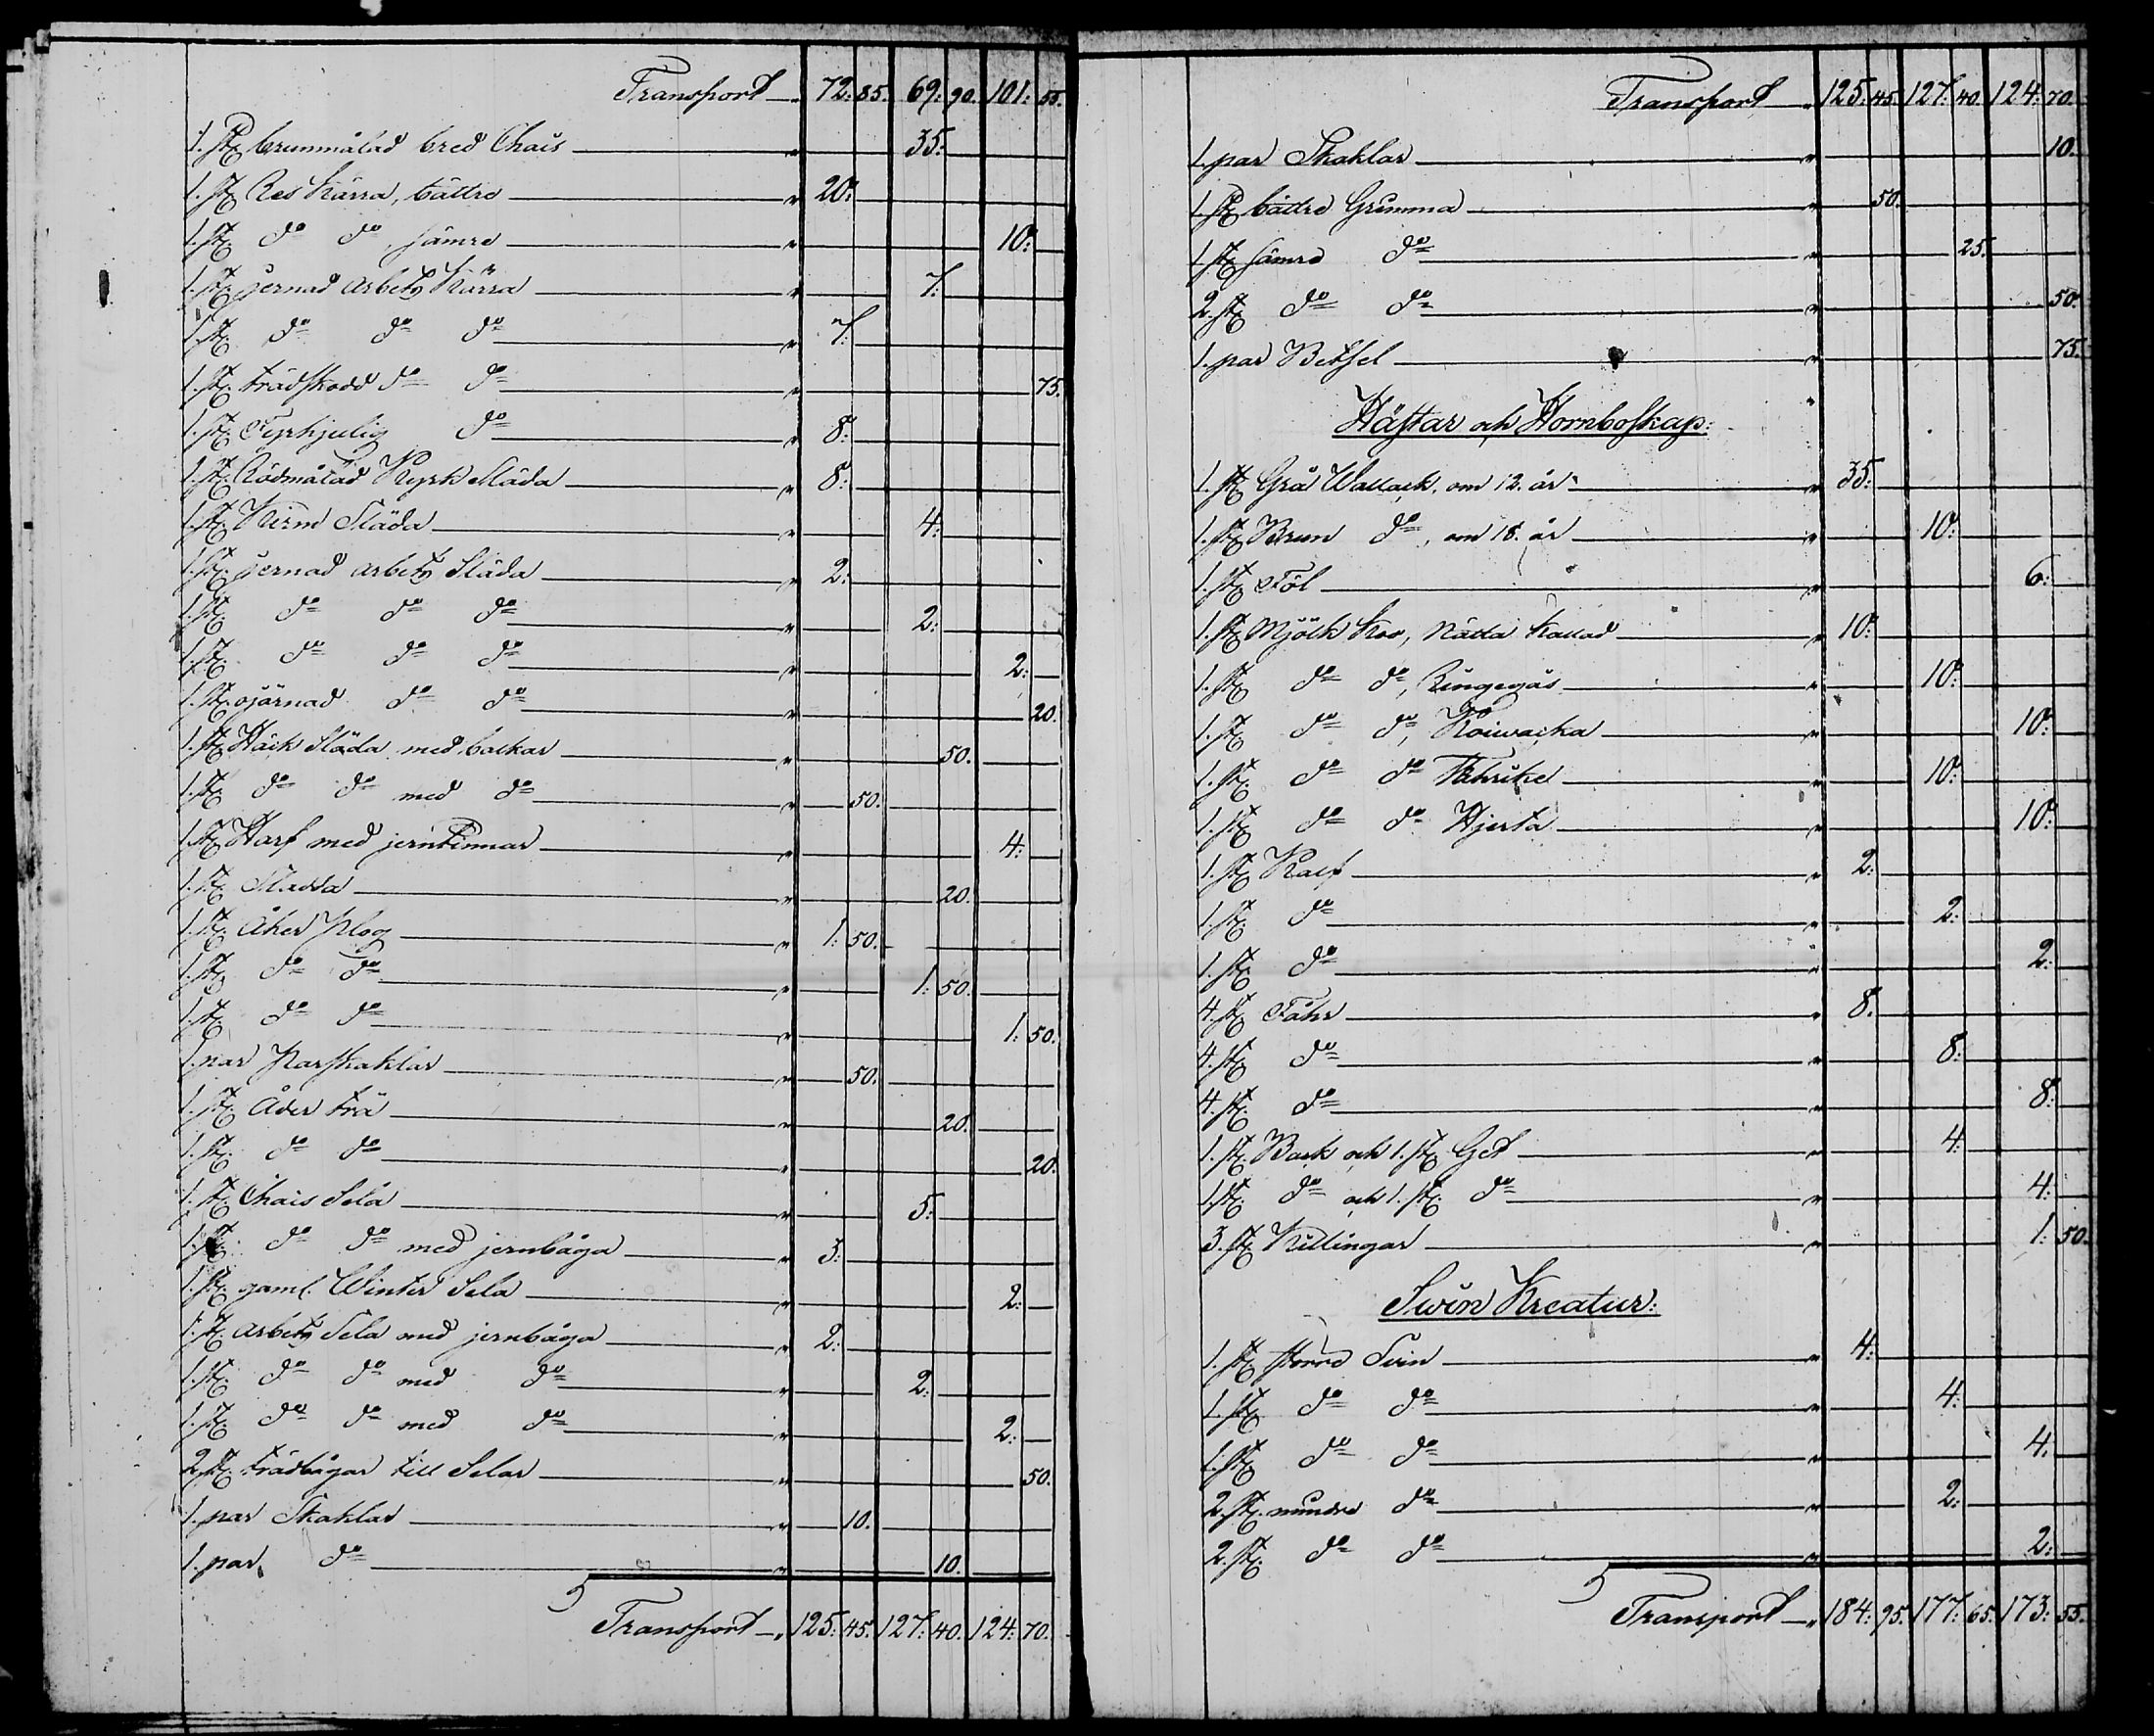 Transport — 72: 85. 69: 90. 101: 55.
1. st. brunmålad bred Chais — " 35:
1. st. Res Kärra, bättre — " 20:
1. st. do do, sämre — " 10:
1. st. jernad arbets Kärra — " 7:
1. st. do do do — " 7:
1. st. trädskodd do do — " 75.
1. st. Fyrhjulig do — " 8:
1. st. Rödmålad Kyrk Släda — " 8:
1. st. Släda — " 4:
1. st. jernad arbets Släda — " 2:
1. st. do do do — " 2:
1. st. do do do — " 2:
1. st. ojärnad do do — " 20.
1. st. Häck Släda med backar — " 50.
1. st. do do med do — " 50.
1. st. Harf med jerntinnar — " 4:
1. st. Sladda — " 20.
1. st. Åker Plog — " 1: 50.
1. st. do do — " 1: 50.
1. st. do do — " 1: 50.
1. par Parskaklar — " 50.
1. st. Åder trä — " 20.
1. st. do do — " 20.
1. st. Chais Sela — " 5:
1. st. do do med jernbåga — " 3:
1. st. gaml. Winter Sela — " 2:
1. st. arbets Sela med jernbåga — " 2:
1. st. do do med do — " 2:
1. st. do do med do — " 2:
2. st. trädbågar till Selar — " 50.
1. par Skaklar — " 10.
1. par do — " 10.
Transport — " 125: 45. 127: 40. 124: 70.
Transport — " 125: 45. 127: 40. 124: 70.
1. par Skaklar — " 10.
1. st. bättre Grimma — " 50.
1. st. sämre do — " 25.
2. st. do do — " 50.
1. par Betsel — " 75.
Hästar och Hornboskap:
1. st. Grå Wallack, om 12. år — " 35:
1. st. Brun do, om 18. år — " 10:
1. st. Föl — " 6:
1. st. Mjölk Koo, Nätta kallad — " 10:
1. st. do do, Ringegås — " 10:
1. st. do do, Koiwacka — " 10:
1. st. do do — " 10:
1. st. do do Hjerta — " 10:
1. st. Kalf — " 2:
1. st. do — " 2:
1. st. do — " 2:
4. st. Fåhr — " 8.
4. st. do — " 8:
4. st. do — " 8:
1. st. Bock och 1. st. Get — " 4:
1. st. do och 1. st. do — " 4:
3. st. Killingar — " 1: 50.
Swin Kreatur:
1. st. större Svin — " 4:
1. st. do do — " 4:
1. st. do do — " 4.
2. st. mindre do — " 2:
2. st. do do — " 2:
Transport — " 184: 95. 177: 65. 173: 55.